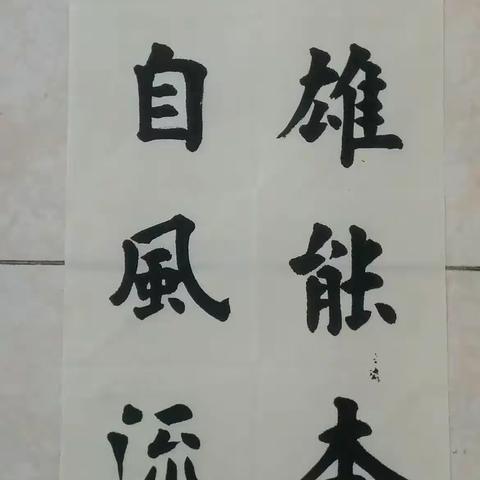 雄能本
自風流